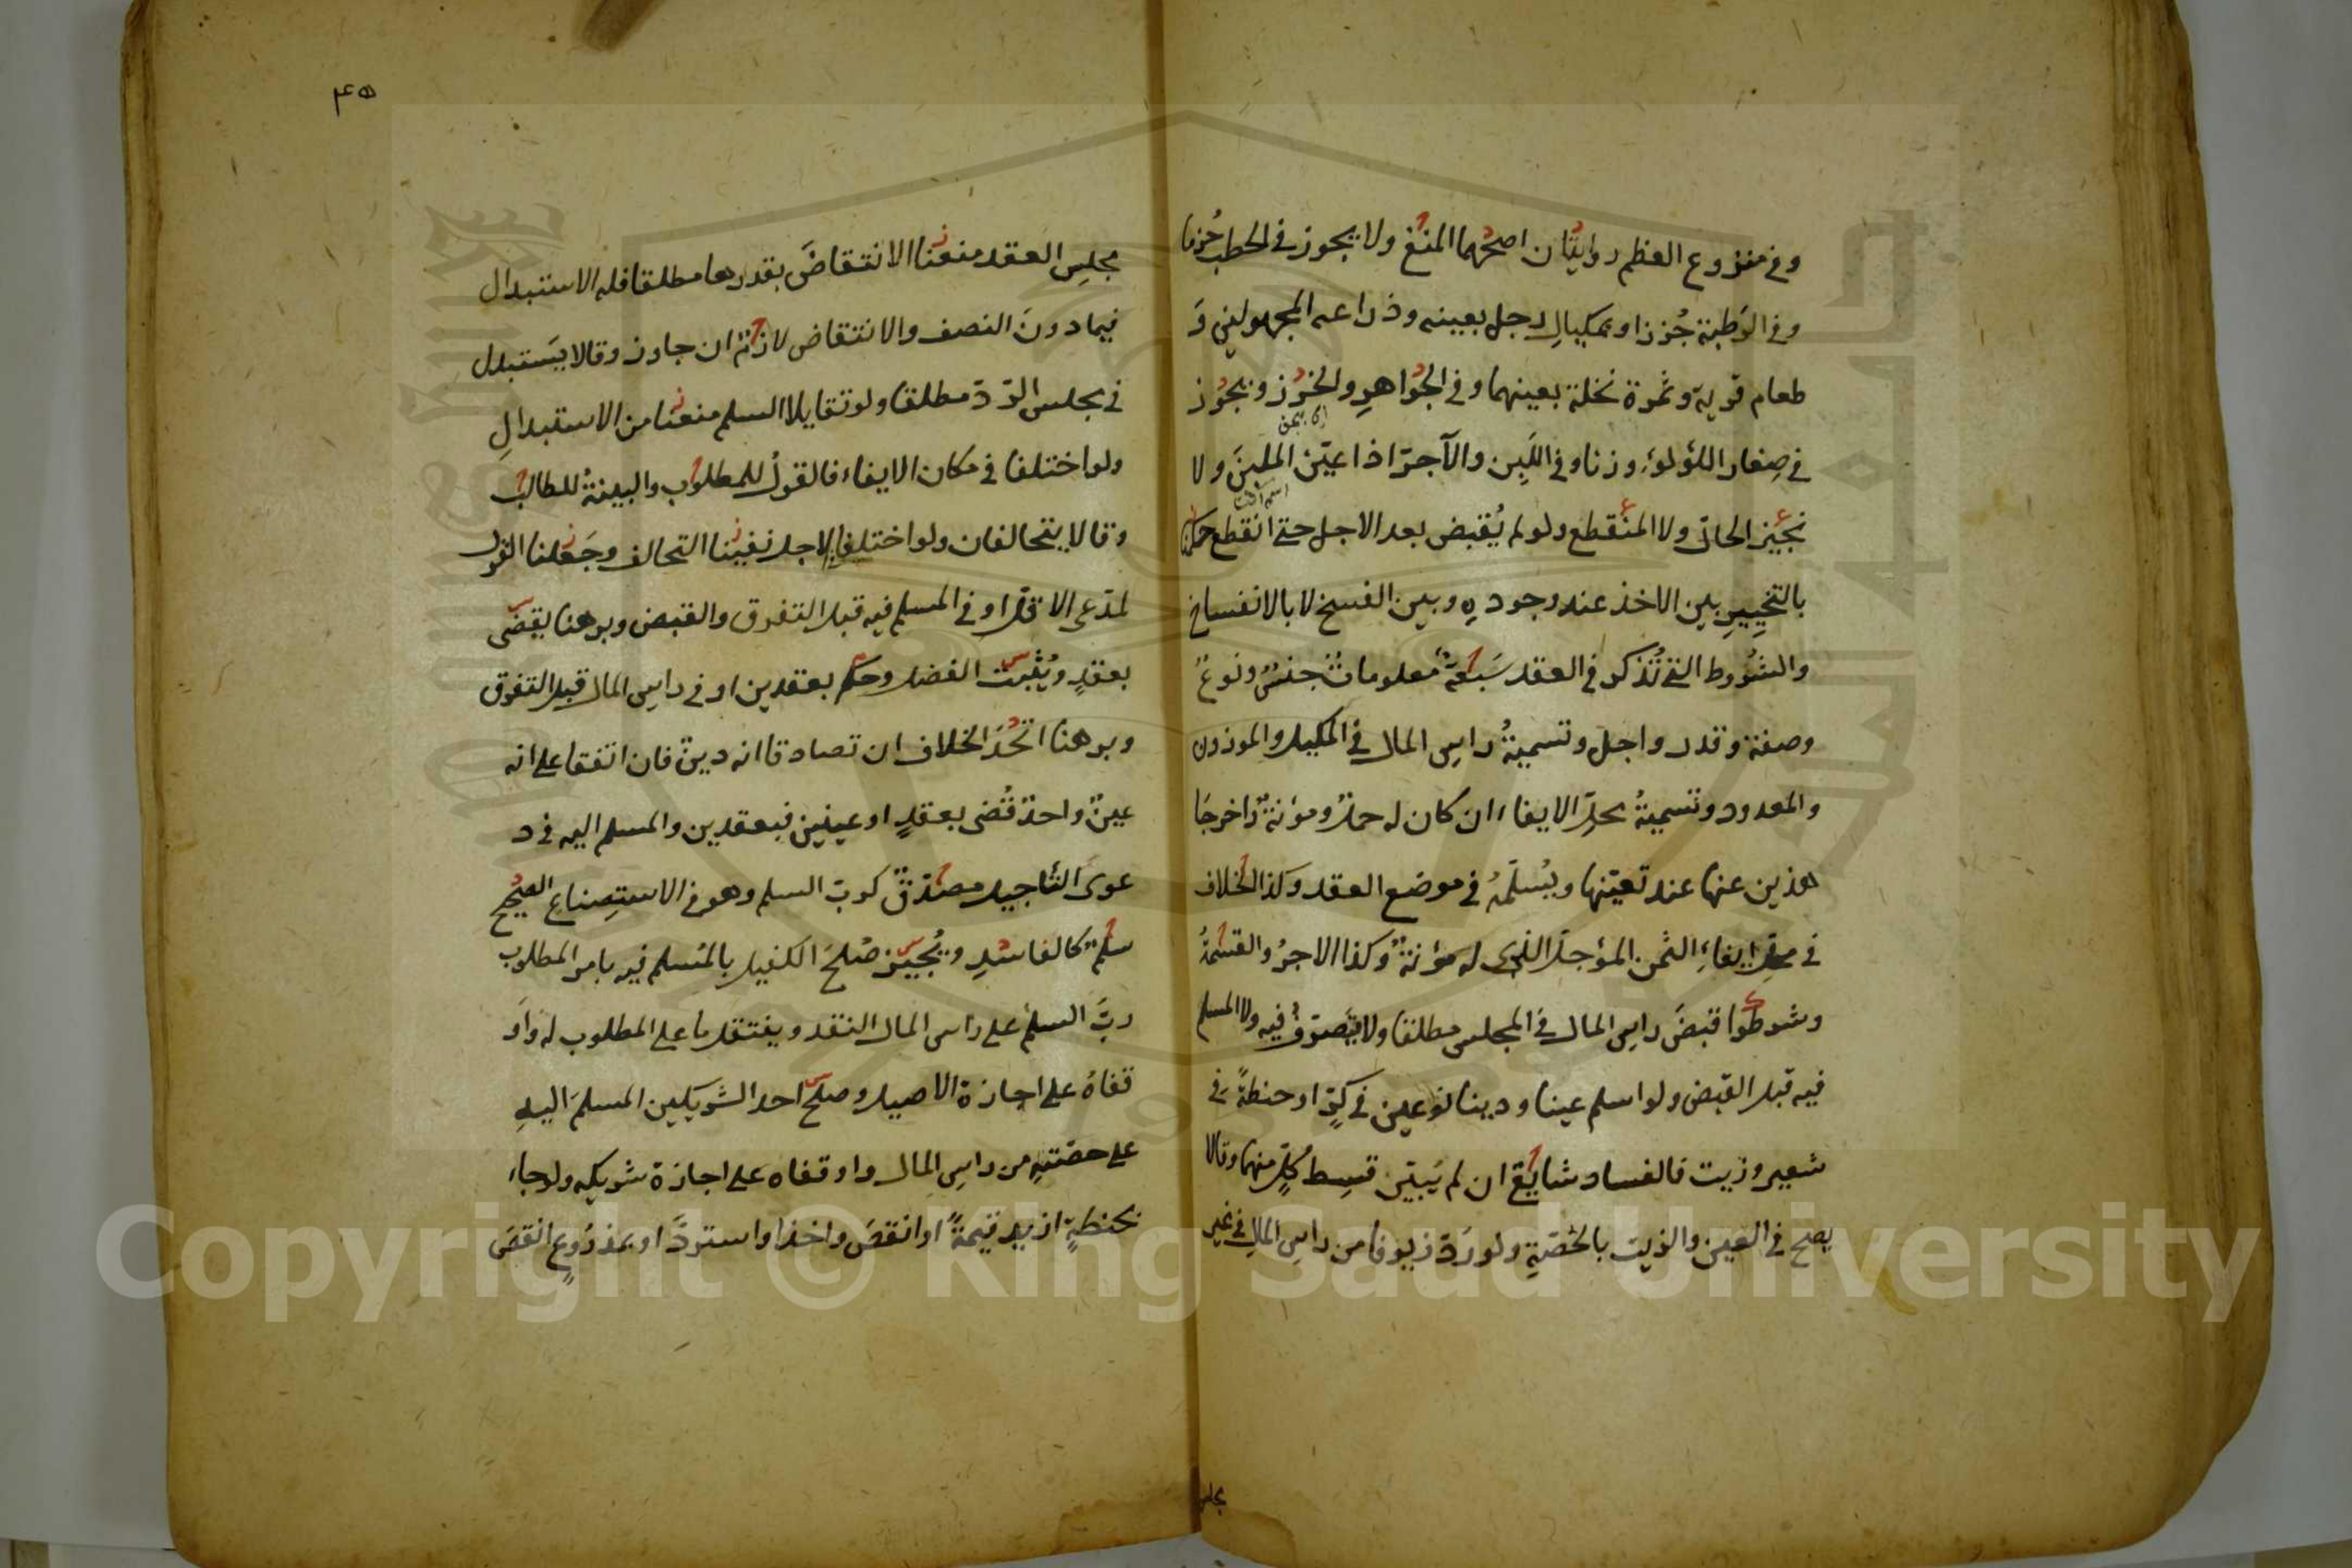 وفي منزوع العظم روايتان اصحهما المنع ولا يجوز في الحطب حُزما
وفي الرَطبة جُرزا او بمكيالِ رجل بعينه وذراعه المجهولين وَ
طعام قرية وثمرة نخلة بعينهما وفي الجواهرِ والخرز ونجوز
في صِغار اللؤلوء وزنا وفي اللَبِن والآجرّ اذا عيّن الملبنَ ولا
نجيز الحالّ ولا المنقطع ولو لم يُقبض بعد الاجل حتى انقطع حكموا
بالتخييرِ بين الاخذ عند وجودهِ وبين الفسخ لا بالانفساخ
والشُروط التي تُذكر في العقد سَبعة معلومات جنسٌ ونوعٌ
وصفة وقدر واجل وتسميةُ راسِ المال في المكيل والموزون
والمعدود وتسميةُ محلِّ الايفاء ان كان له حملٌ ومؤنةٌ واخرجَا
هذين عنها عند تعيّنها ويُسلّمهُ في موضع العقد وكذا الخلاف
في محلِّ ايفاءِ الثمن المؤجل الذي له مؤنةٌ وكذا الاجرُ والقسمةُ
وشرطوا قبضَ راسِ المال في المجلس مطلقا ولا يتصرّفُ فيه ولا المسلم
فيه قبل القبض ولو اسلم عينا ودينا نوعين في كرٍّ او حنطةً في
شعير وزيت فالفساد شايع ان لم يَبيّن قسِطُ كُلٍّ منهما وقالا
يصح في العين والزيت بالحصّةِ ولو رَدّ زيوفا من راسِ المالِ في غير
مجلس
٤٥
مجلسِ العقد منعنا الانتقاضَ بقدرها مطلقا فله الاستبدال
فيما دونَ النصف والانتقاض لازم ان جاوز وقالا يَستبدل
في مجلس الردّ مطلقا ولو تقايلا السلم منعنا من الاستبدالِ
ولو اختلفا في مكان الايفاء فالقولُ للمطلوب والبينةُ للطالب
وقالا يتحالفان ولو اختلفا في الاجل نفينا التحالف وجَعلنا القول
لمدّعي الاقلّ او في المسلم فيه قبل التفرق والقبض وبرهنا يقضى
بعقدٍ ويُثبت الفضل وحكم بعقدين او في راسِ المال قبل التفرق
وبرهنا اتّحدَ الخلاف ان تصادقا انه دينٌ فان اتفقا على انه
عينٌ واحدٌ قُضى بعقدٍ او عينين فبعقدين والمسلم اليه في د
عوى التأجيل مصدّقٌ كربّ السلم وهو في الاستِصناعِ الصحيح
سلم كالفاسدِ ونُجيز صُلحَ الكفيل بالمُسلم فيه بامر المطلوب
ربَّ السلمِ على راس المال النقد وينتقل ما على المطلوب له واَو
قفاهُ على اجازة الاصيل وصلح احد الشريكين المسلمَ اليهِ
على حصّتهِ من راسِ المال واوقفاه على اجازة شريكه ولو جاء
بحنطةٍ ازيد قيمةً او انقصَ واخذا واستردَّ او بمذرُوعٍ انقصَ